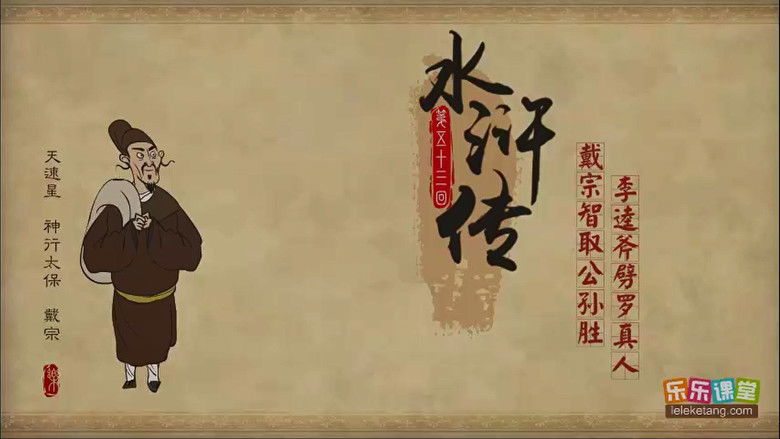 水浒传
第五十三回
戴宗智取公孙胜
李逵斧劈罗真人
天速星 神行太保 戴宗
乐乐课堂
leleketang.com